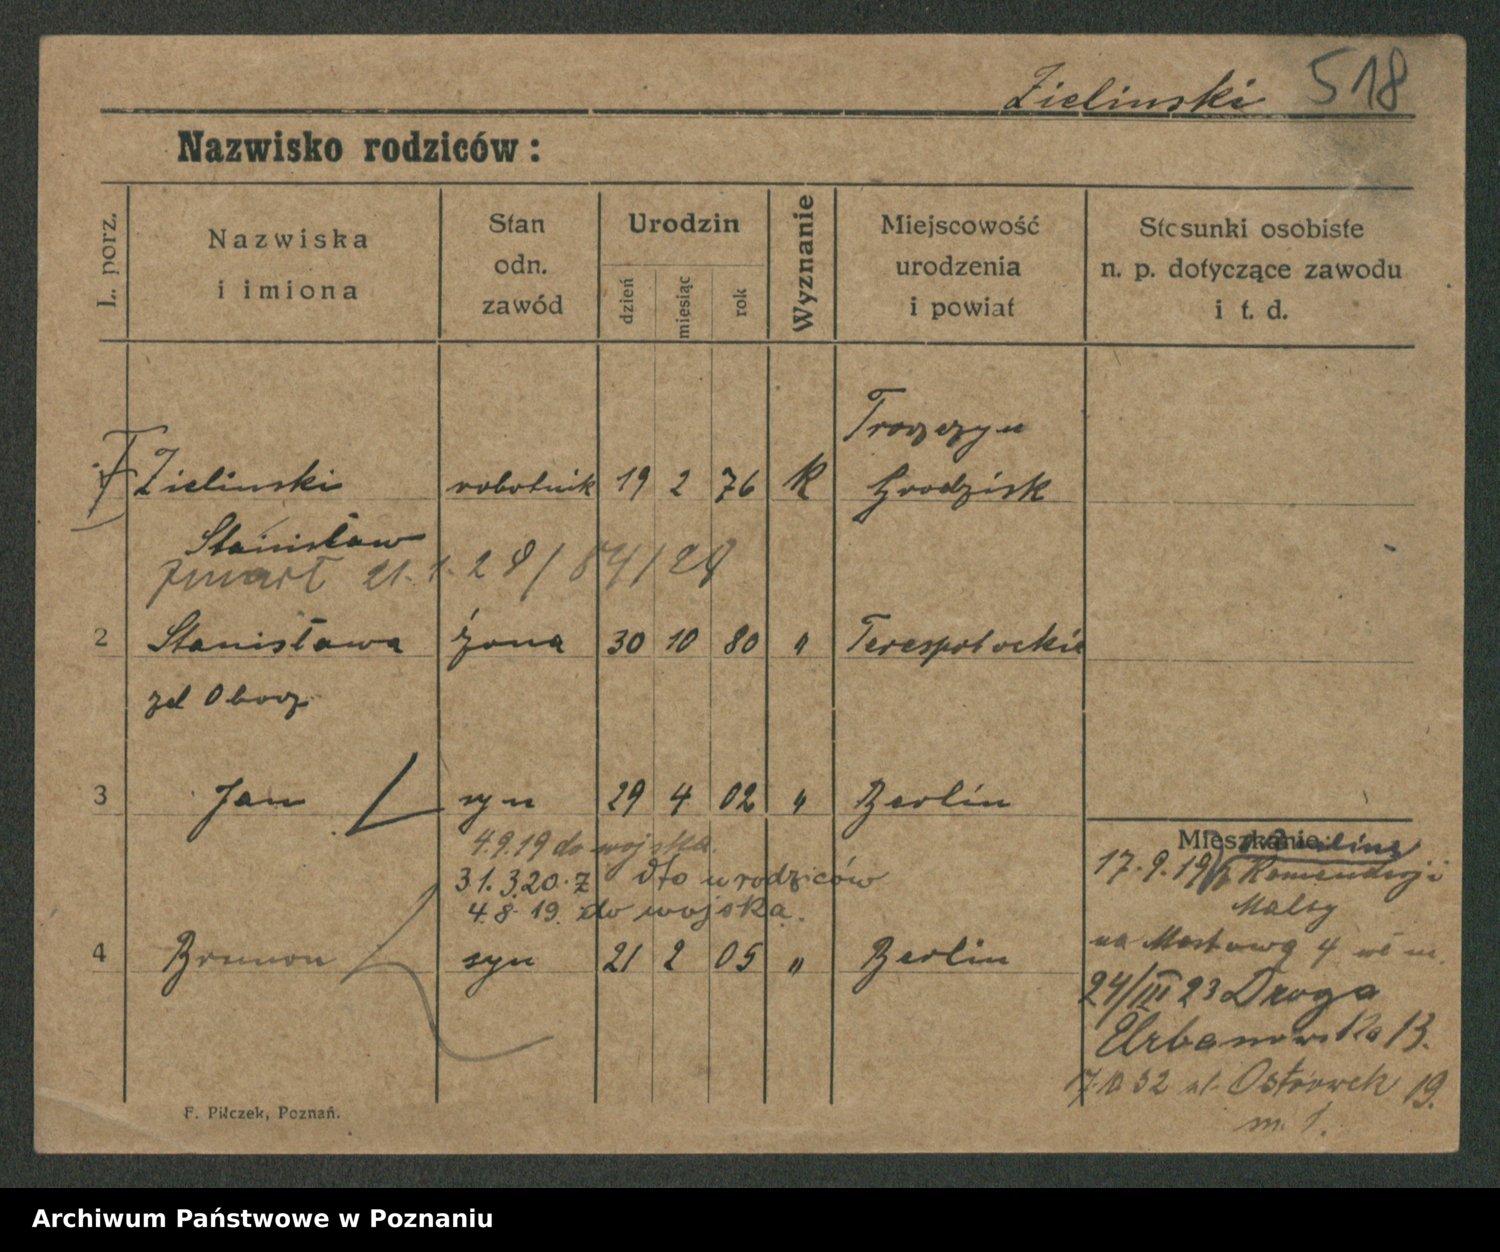 Zielinski 518
Nazwisko rodziców:
L. porz.
Nazwiska
i imiona
Stan
odn.
zawód
Urodzin
dzień
miesiąc
rok
Wyznanie
Miejscowość
urodzenia
i powiat
Stosunki osobiste
n. p. dotyczące zawodu
i t. d.
Zielinski robotnik 19 2 76 K Grodzisk
Stanisław
zmarł 21.1.28/84/28
2 Stanisława żona 30 10 80 "
zd
3 Jan syn 29 4 02 " Berlin
4.9.19 do wojska.
31.3.20. z dto u rodziców
4.8.19. do wojska.
4 Brunon syn 21 2 05 " Berlin
Mieszkanie:
17.9.19
na Mostową 4
24/III 23 Droga
Urbanowska 13.
ul. Ostrówek 19.
m. 1.
F. Pilczek, Poznań.
Archiwum Państwowe w Poznaniu